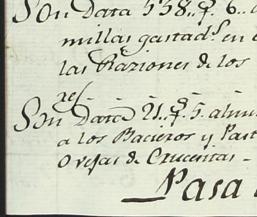 Son Data 538.. f. 6..
millas gastad.s en
las Raziones de los
res/
Son Data 21.. f. 5. almu
a los Bacieros y Past
Ovejas de Crucentas -
Pasa